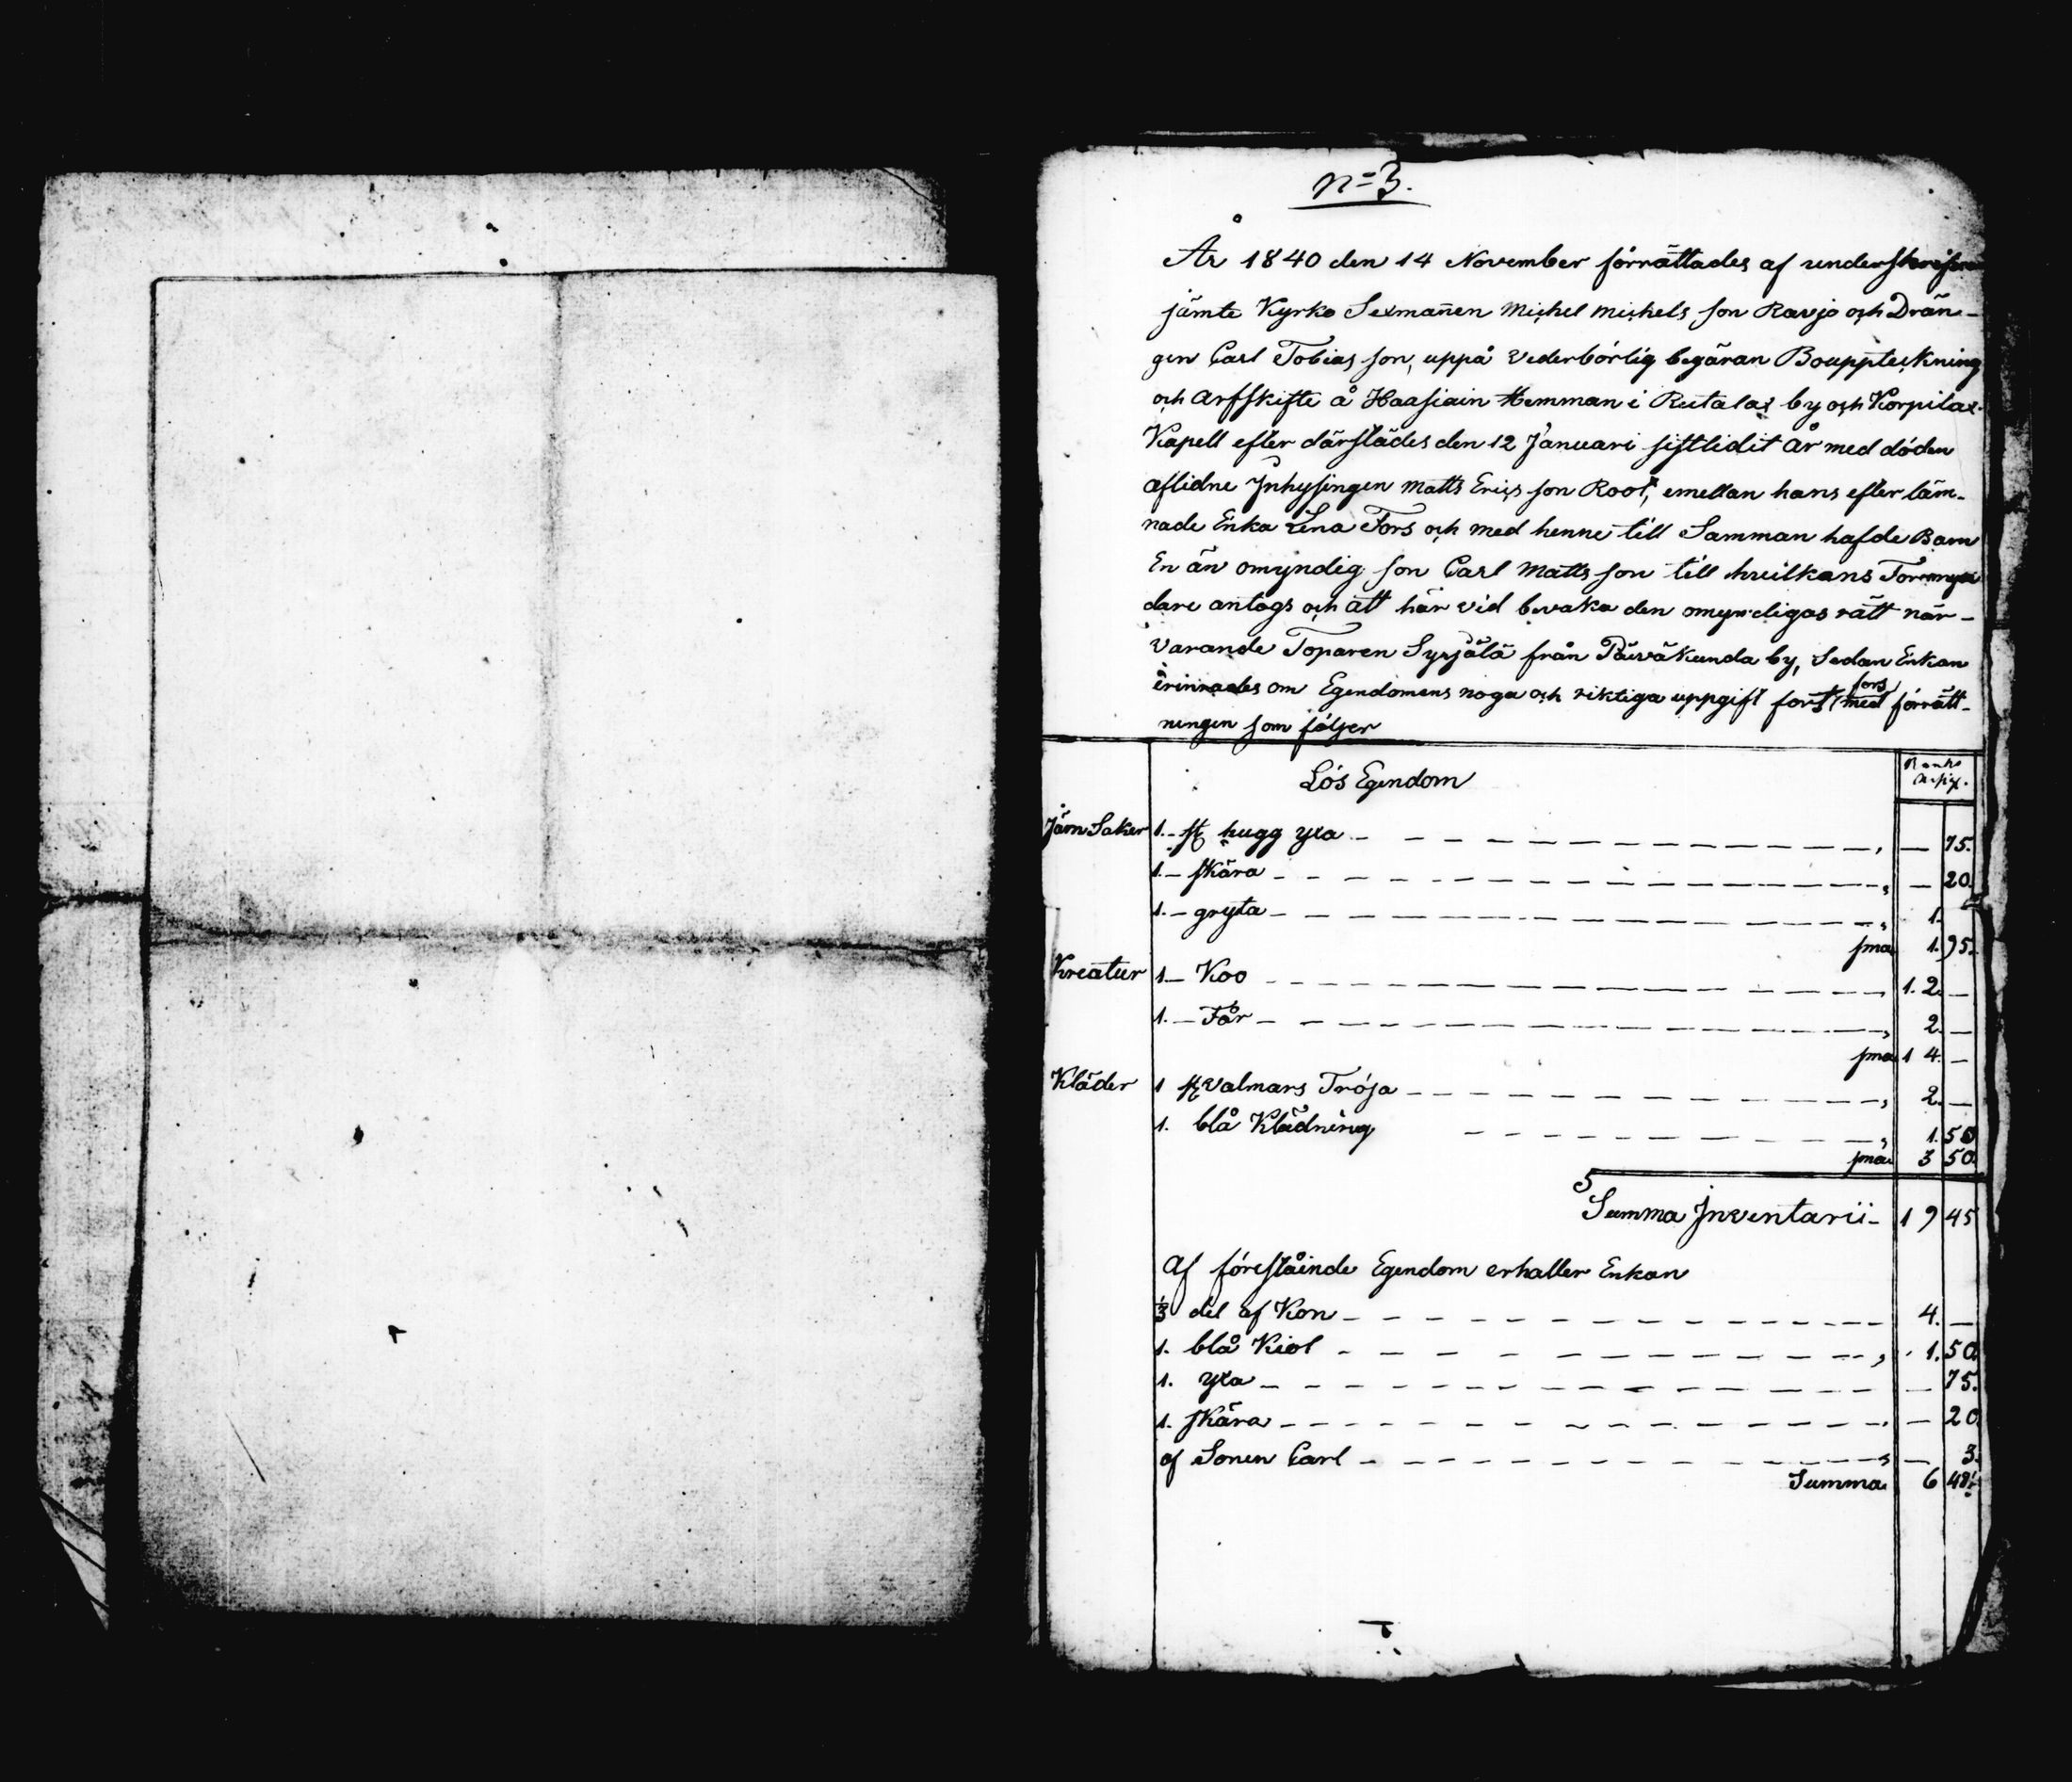 n=3.
År 1840 den 14 November förrättades af
jämte Kyrko Sexmañen Michel Michels son Ravjo och Drän-
gen Carl Tobias son, uppå vederbörlig begäran Bouppteckning
och Arfskifte å Haasiain Hemman i Rutalax by och Korpilax
Kapell efter därstädes den 12 Januari sistledit år med döden
aflidne Inhysingen Matts Erics son Root, emellan hans efter läm-
nade Enka Lena Fors och med henne till Samman hafde Barn
En än omyndig son Carl Matts son till hvilkens
dare antogs och att här vid bevaka den omyndigas rätt när-
varande Toparen Syrjälä från Päiväkunda by, Sedan Enkan
erinrades om Egendomens noga och riktiga uppgift med förrätt-
ningen som följer
Lös Egendom
Järn Saker 1.- st hugg yxa - - - 75.
1.- skära - - - 20.
1.- gryta - - - 1.
sma 1. 95.
Kreatur 1.- Koo - - - 12. -
1.- Får - - - 2. -
sma 14. -
Kläder 1 st valmars Tröja - - - 2. -
1. blå Klädning - - - 1. 50
sma 3 50.
Summa Inventarii- 19 45
Af föreståinde Egendom erhaller Enkan
1/3 del af Kon - - - 4. -
1. blå Kiol - - - 1. 50.
1. yxa - - - 75.
1. skära - - - 20.
af Sonen Carl - - - 3.
Summa 6 48